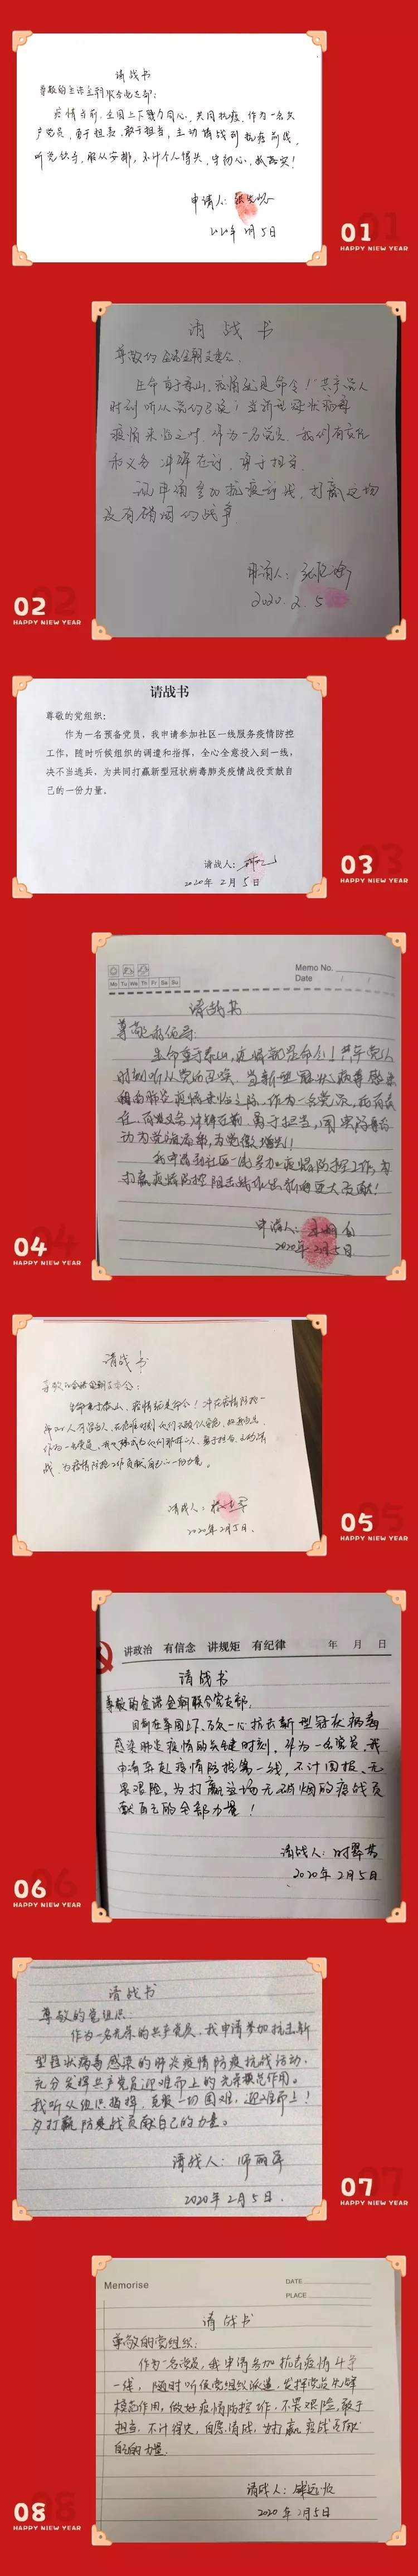 请战书
尊敬的金诺金朝联合党支部：
疫情当前，全国上下戮力同心，共同抗疫，作为一名共
产党员，勇于担责、敢于担当，主动请战到抗疫前线，
听党Loss，服从安排，不计个人得失，守初心，
申请人：
2020年2月5日
01
HAPPY NIEW YEAR
请战书
尊敬的金诺金朝支委会，
生命重于泰山，疫情就是命令！共产党人
时刻听从党的召唤！当新型冠状病毒
疫情来临之时，作为一名党员，我们有责任
和义务冲锋在前，勇于担当。
我申请参加抗疫前线，打赢这场
没有硝烟的战争
申请人：
2020.2.5
02
HAPPY NIEW YEAR
请战书
尊敬的党组织：
作为一名预备党员，我申请参加社区一线服务疫情防控
工作，随时听候组织的调遣和指挥，全心全意投入到一线，
决不当逃兵，为共同打赢新型冠状病毒肺炎疫情战役贡献自
己的一份力量。
请战人：
2020年2月5日
03
HAPPY NIEW YEAR
Memo No.
Mo Tu We Th Fr Sa Su
Date / /
请战书
尊敬的领导：
生命重于泰山，疫情就是命令！共产党人
时刻听从党的召唤，当新型冠状病毒感染
的肺炎疫情来临之际，作为一名党员，我有责
任、有义务冲锋在前，勇于担当，用实际行
动为党旗添彩，为党徽增光！
我申请到社区一线参加疫情防控工作，为
打赢疫情防控阻击战作出新的更大贡献！
申请人：
2020年2月5日
04
HAPPY NIEW YEAR
请战书
尊敬的金诺金朝支委会：
生命重于泰山，疫情就是命令！冲在疫情防控一
作为一名党员，我也要成为他们那样的人，勇于担当，主动请
战，为疫情防控工作贡献自己的一份力量。
请战人：
2020年2月5日．
05
HAPPY NIEW YEAR
讲政治 有信念 讲规矩 有纪律 年 月 日
请战书
尊敬的金诺金朝联合党支部，
目前在举国上下、万众一心抗击新型冠状病毒
感染肺炎疫情的关键时刻，作为一名党员，我
申请奔赴疫情防控第一线，不计回报、无
畏艰险，为打赢这场无硝烟的疫战贡
献自己的全部力量！
请战人：时翠芳
2020年2月5日
06
HAPPY NIEW YEAR
请战书
尊敬的党组织
作为一名光荣的共产党员，我申请参加抗击新
型冠状病毒感染的肺炎疫情防疫抗战活动，
充分发挥共产党员迎难而上的先锋模范作用。
我听从组织指挥，克服一切困难，迎难而上！
为打赢防疫战贡献自己的力量。
请战人：师丽军
2020年2月5日．
07
HAPPY NIEW YEAR
Memorise
DATE
PLACE
请战书
尊敬的党组织：
作为一名党员，我申请参加抗击疫情斗争
一线，随时听候党组织派遣，发挥党员先锋
模范作用，做好疫情防控工作，不畏艰险，敢于
担当，不计得失，自愿请战，为打赢疫战贡献
自己的力量．
请战人：
2020年2月5日
08
HAPPY NIEW YEAR